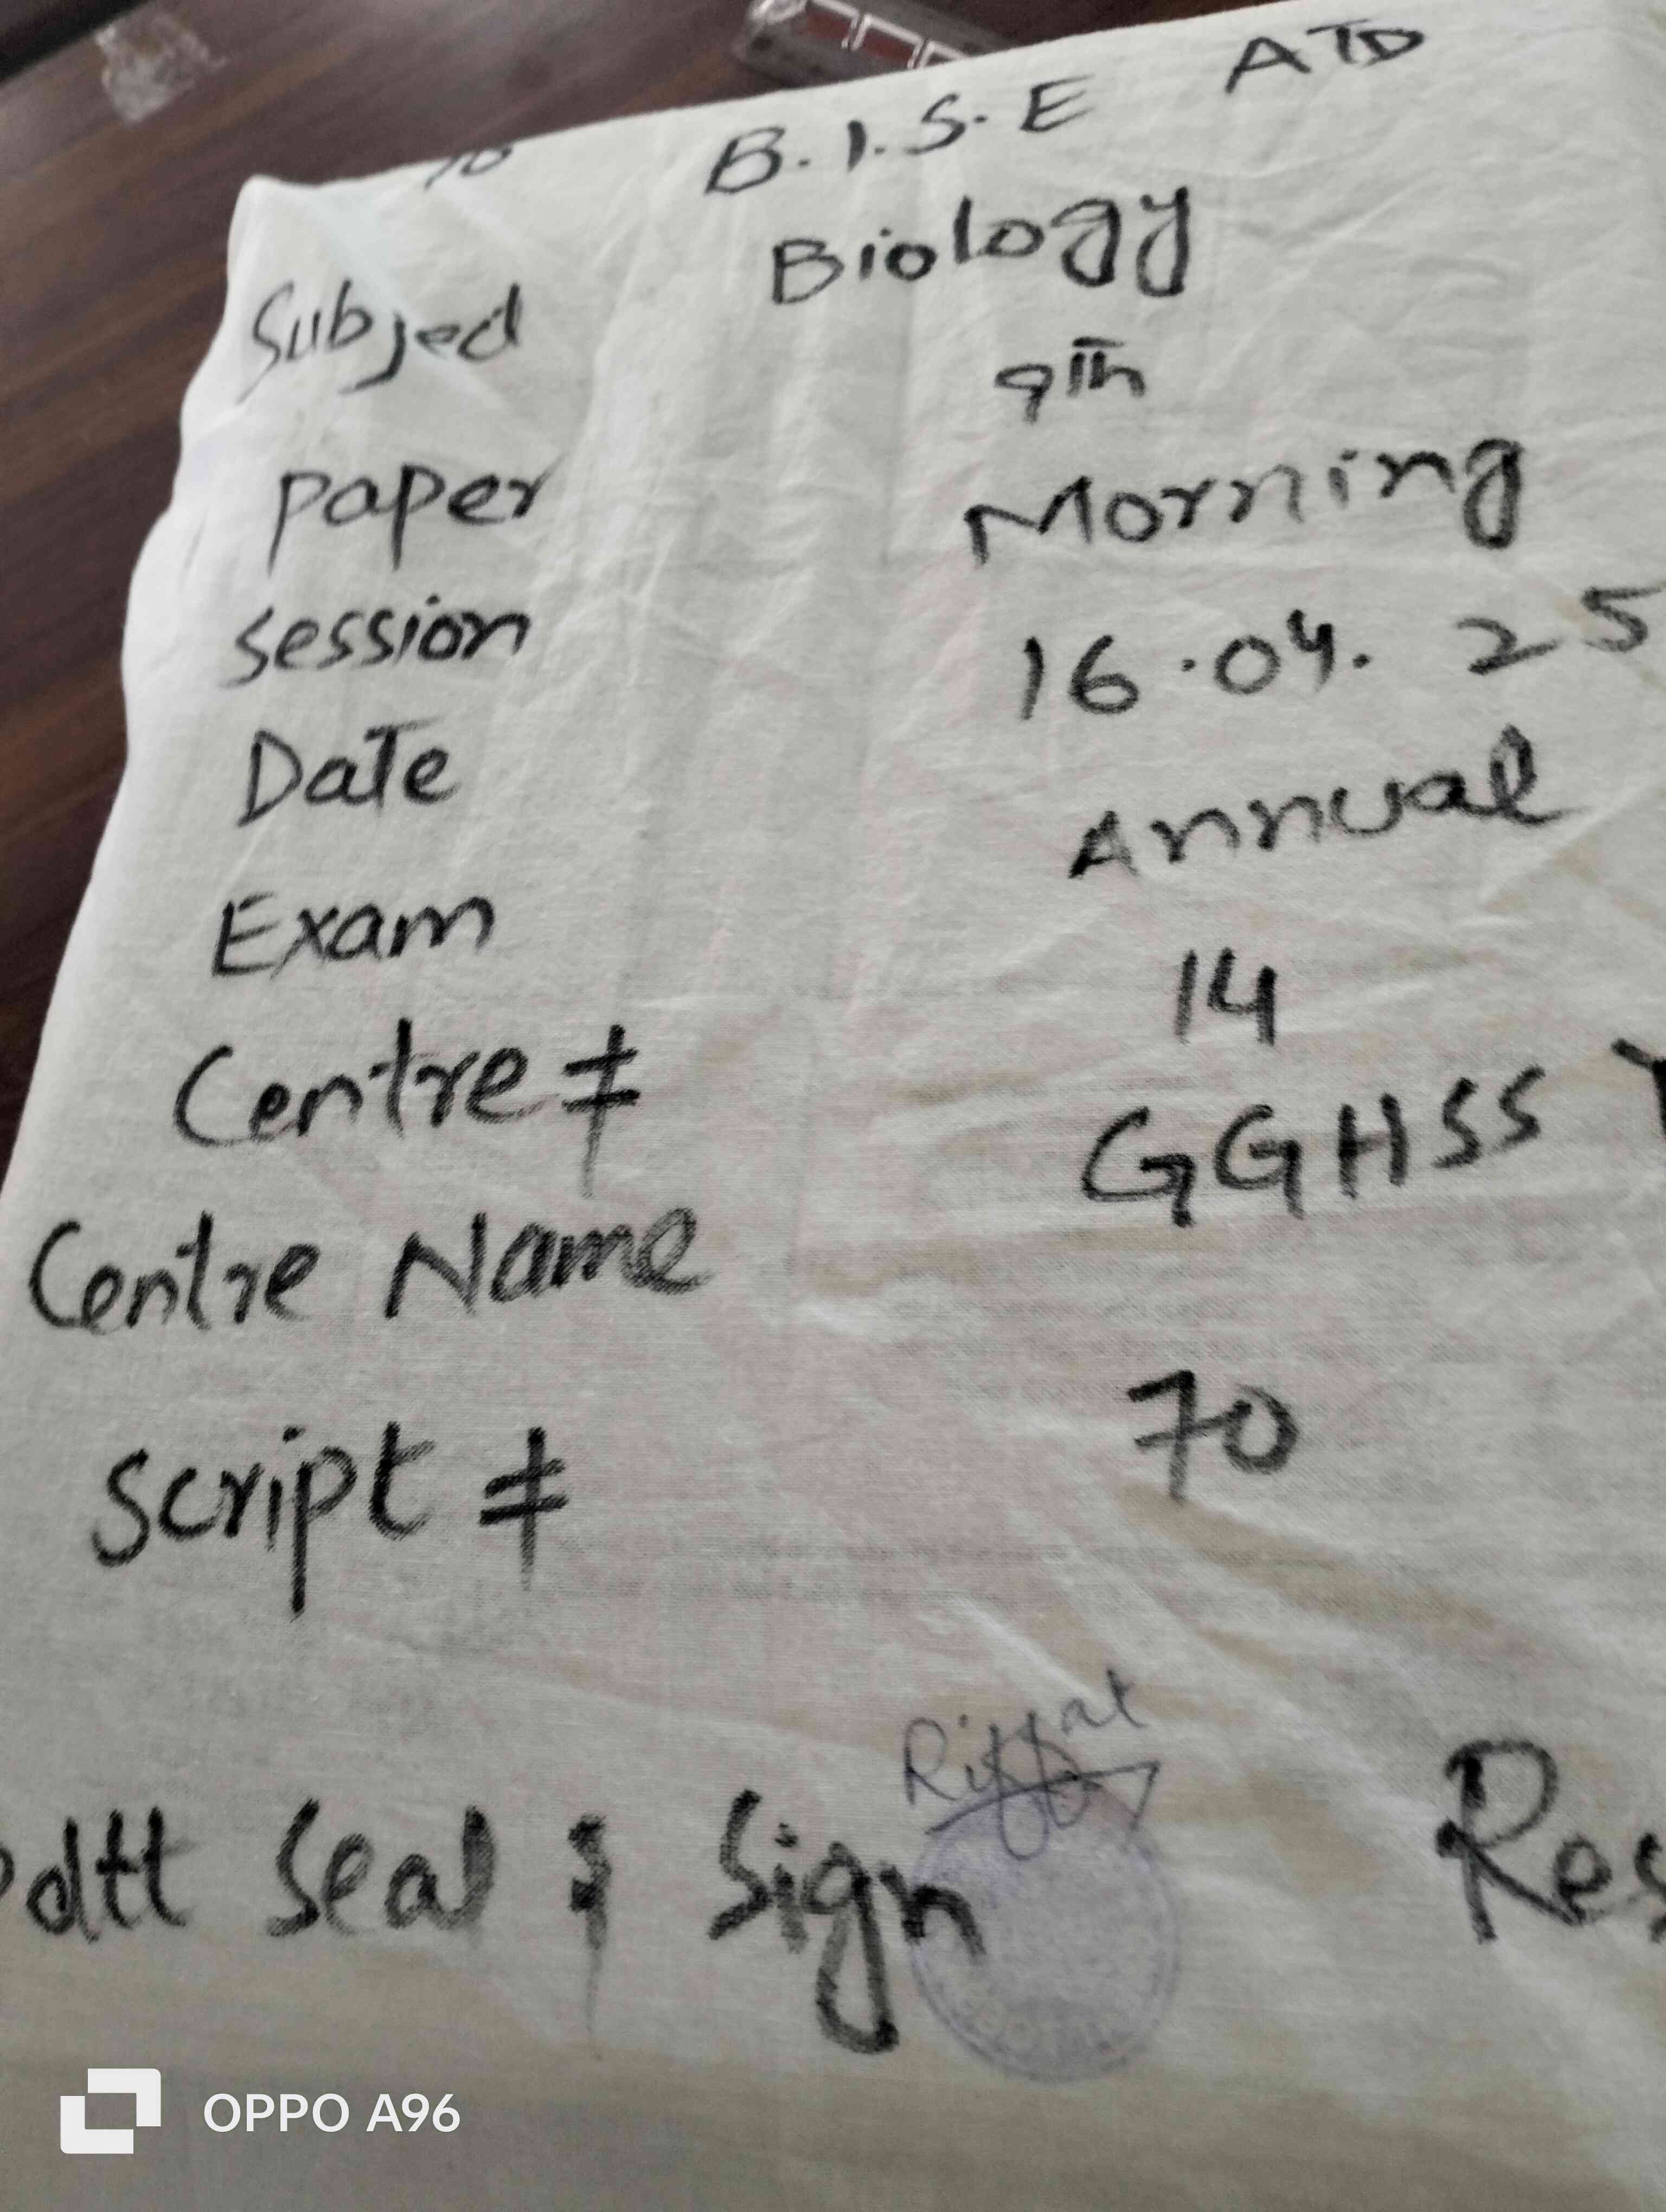 B.I.S.E ATD
Subject Biology
Paper 9th
Session Morning
Date 16.04.25
Exam Annual
Centre # 14
Centre Name GGHSS
Script # 70
Riffat
Seal & Sign
OPPO A96